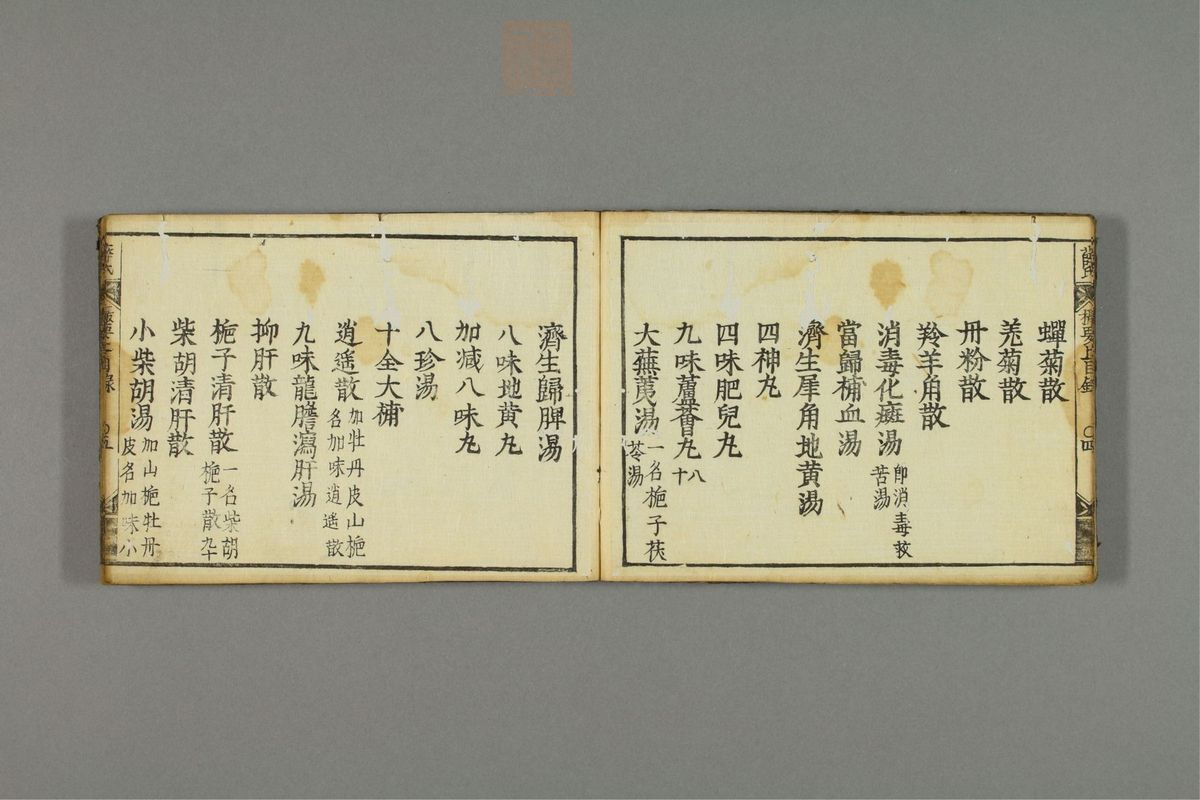 蟬菊散
羗菊散
丹粉散
羚羊角散
消毒化斑湯 卽消毒救苦湯
當歸補血湯
濟生犀角地黄湯
四神丸
四味肥兒丸
九味蘆薈丸 八十
大蕪荑湯 一名梔子茯苓湯
濟生歸脾湯
八味地黄丸
加减八味丸
八珍湯
十全大補
逍遥散 加牡丹皮山梔名加味逍遥散
九味龍膽瀉肝湯
抑肝散
梔子清肝散 一名柴胡梔子散九十
柴胡清肝散
小柴胡湯 加山梔牡丹皮名加味小